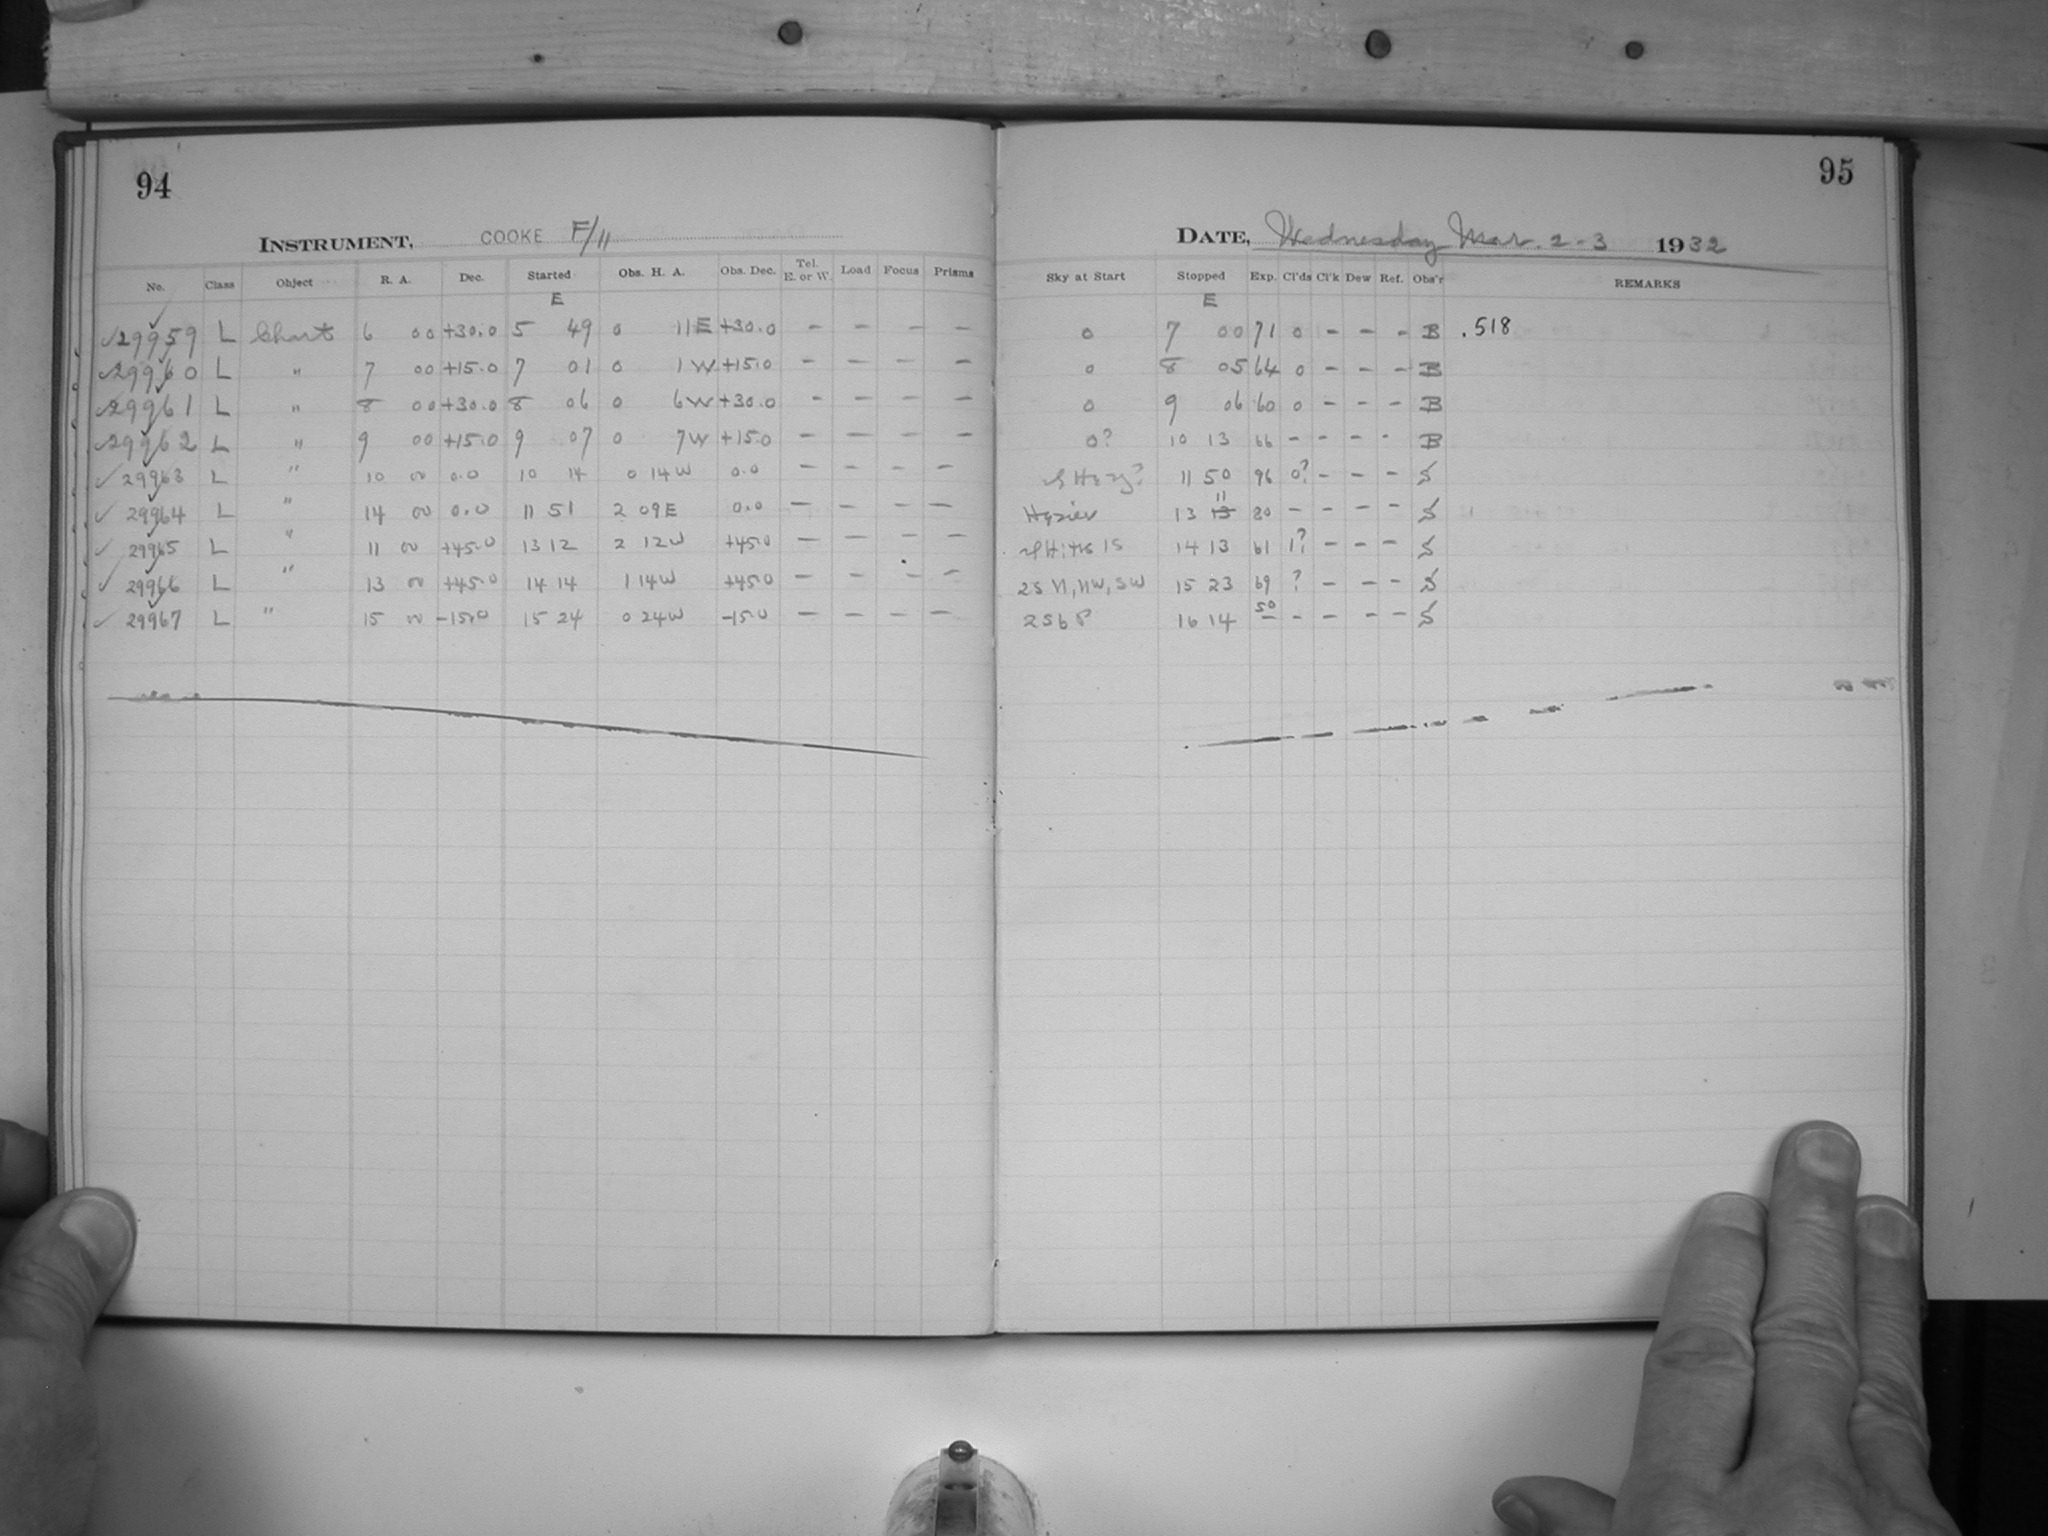 94
INSTRUMENT, COOKE F/11
No. Class Object R. A. Dec. Started Obs. H. A. Obs. Dec. Tel. E. or W. Load Focus Prisms
E
29959 L Chart 6 00 +30.0 5 49 0 11E +30.0 - - - -
29960 L " 7 00 +15.0 7 01 0 1W +15.0 - - - -
29961 L " 8 00 +30.0 8 06 0 6W +30.0 - - - -
29962 L " 9 00 +15.0 9 07 0 7W +15.0 - - - -
29963 L " 10 00 0.0 10 14 0 14W 0.0 - - - -
29964 L " 14 00 0.0 11 51 2 09E 0.0 - - - -
29965 L " 11 00 +45.0 13 12 2 12W +45.0 - - - -
29966 L " 13 00 +45.0 14 14 1 14W +45.0 - - - -
29967 L " 15 00 -15.0 15 24 0 24W -15.0 - - - -
95
DATE, Wednesday Mar. 2-3 1932
Sky at Start Stopped Exp. Cl'ds Cl'k Dew Ref. Obs'r REMARKS
E
0 7 00 71 0 - - - B .518
0 8 05 64 0 - - - B
0 9 06 60 0 - - - B
0? 10 13 66 - - - - B
11 50 96 0? - - - S
Hazier 13 11 80 - - - - S
1S 14 13 61 1? - - - S
2S N, NW, SW 15 23 69 ? - - - S
2S6P 16 14 50 - - - - S